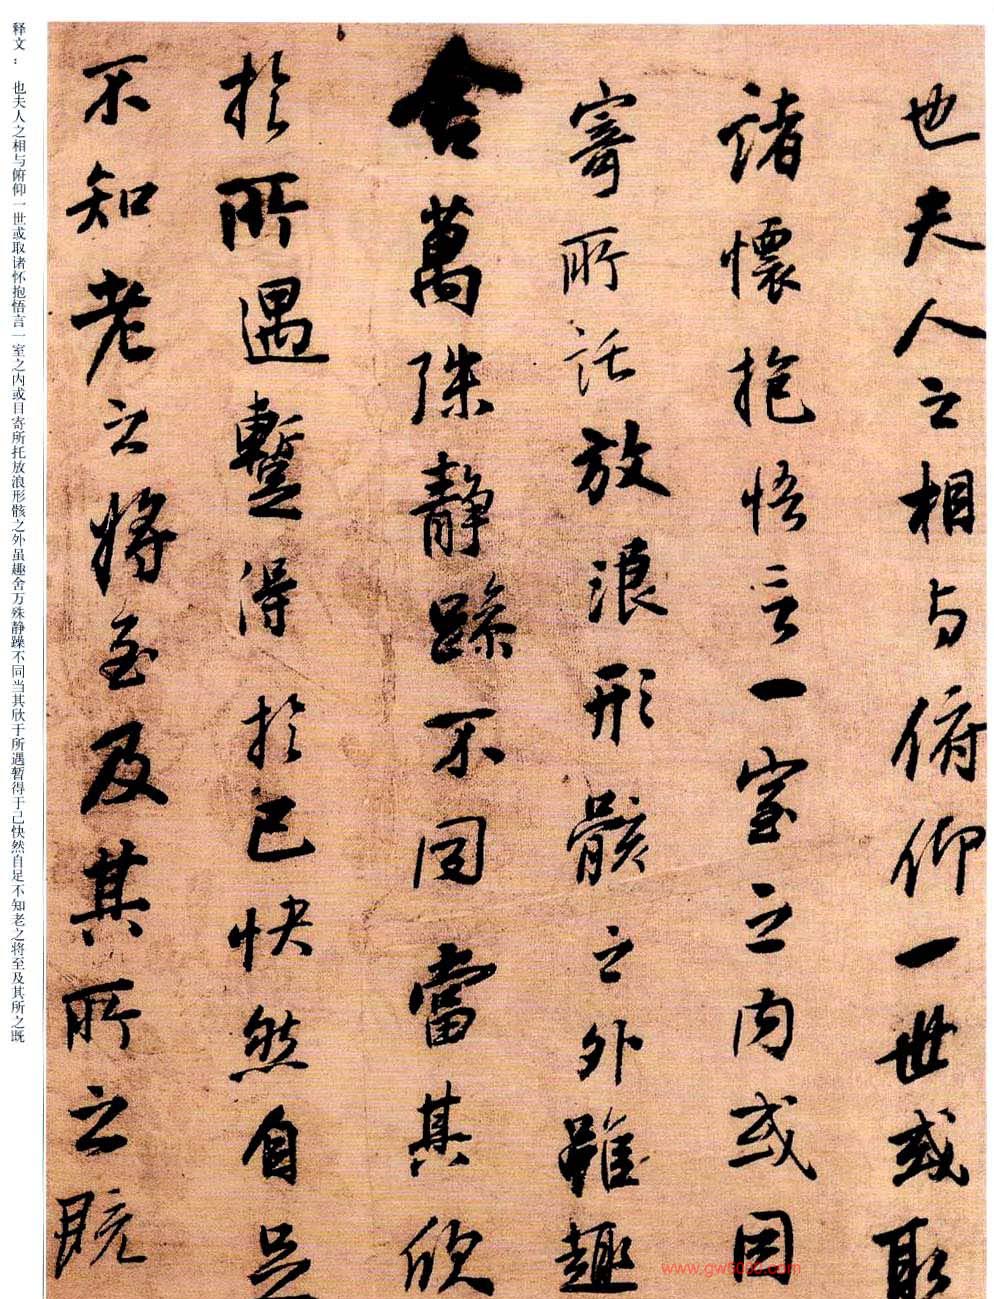 也夫人之相与俯仰一世或取
諸懷抱悟言一室之内或因
寄所託放浪形骸之外雖趣
舍萬殊静躁不同當其欣
於所遇蹔得於己快然自足
不知老之將至及其所之既
释文：也夫人之相与俯仰一世或取诸怀抱悟言一室之内或目寄所托放浪形骸之外虽趣舍万殊静躁不同当其欣于所遇暂得于己快然自足不知老之将至及其所之既